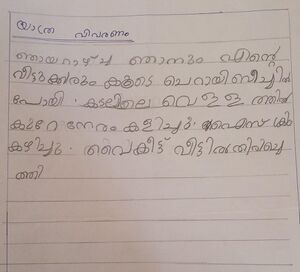 യാത്ര വിവരണം
ഞായറാഴ്ച്ച ഞാനും എന്റെ
വീട്ടുക്കരും കൂടെ ചെറായി ബീച്ചിൽ
പോയി. കടലിലെ വെള്ളത്തിൽ
കുറേ നേരം കളിച്ചു. ഐസ് ക്രീം
കഴിച്ചു. വൈകീട്ട് വീട്ടിൽ തിരിച്ചെ
ത്തി